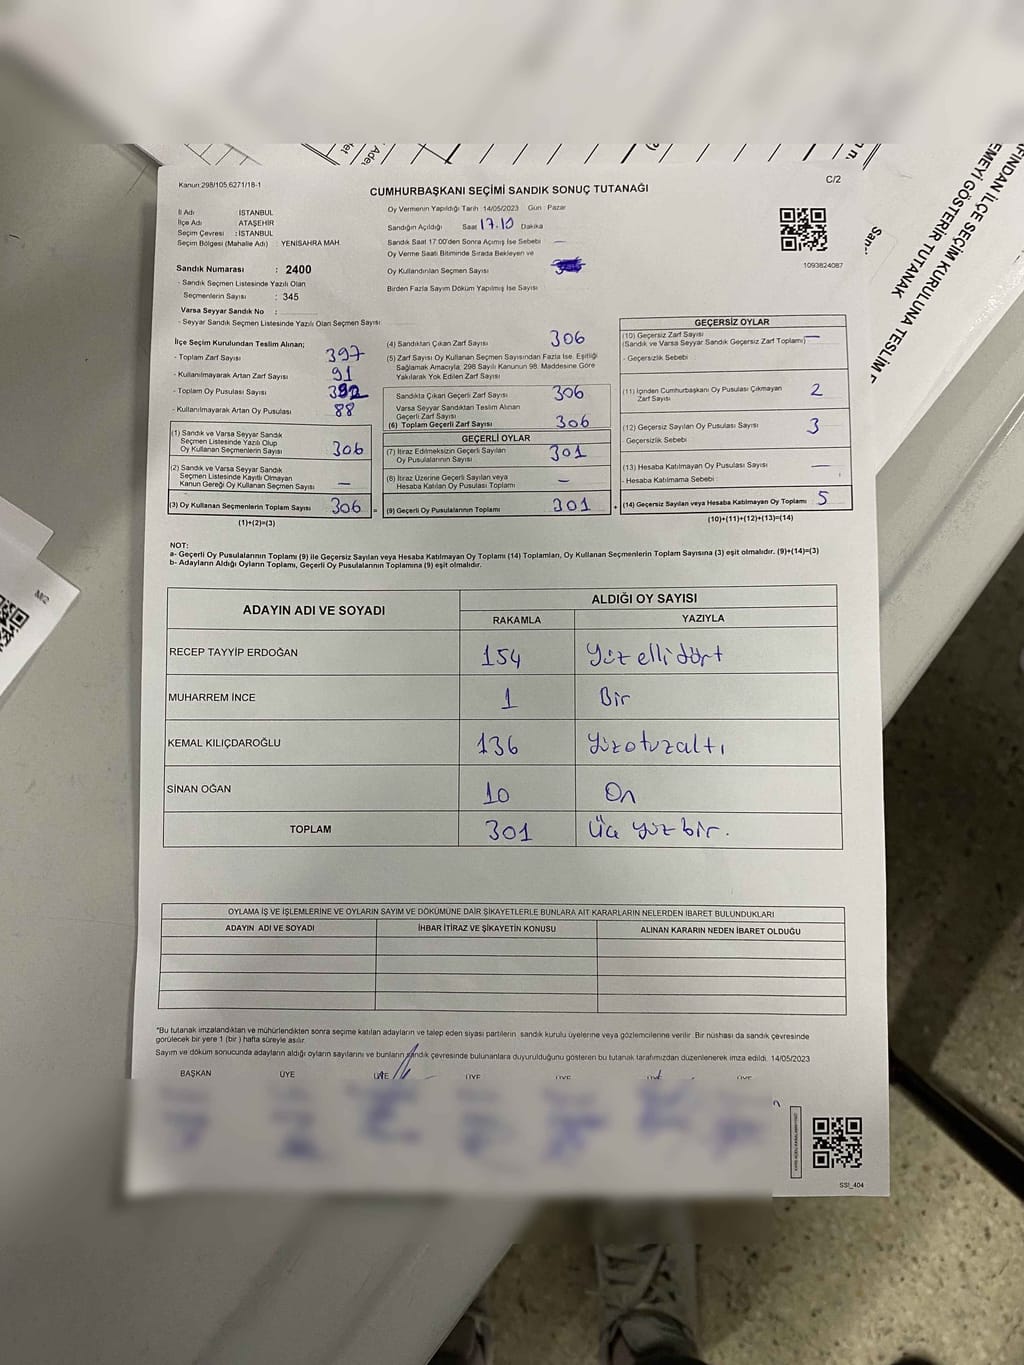 Kanun:298/105,6271/18-1
C/2
CUMHURBAŞKANI SEÇİMİ SANDIK SONUÇ TUTANAĞI
İl Adı İSTANBUL
İlçe Adı ATAŞEHİR
Seçim Çevresi : İSTANBUL
Seçim Bölgesi (Mahalle Adı) : YENİSAHRA MAH.
Oy Vermenin Yapıldığı Tarih :14/05/2023 Gün : Pazar
Sandığın Açıldığı Saat 17.10 Dakika
Sandık Saat 17:00'den Sonra Açımış İse Sebebi
Oy Verme Saati Bitiminde Sırada Bekleyen ve
Oy Kullandırılan Seçmen Sayısı
Birden Fazla Sayım Döküm Yapılmış İse Sayısı
1093824087
Sandık Numarası : 2400
- Sandık Seçmen Listesinde Yazılı Olan
Seçmenlerin Sayısı : 345
Varsa Seyyar Sandık No :
- Seyyar Sandık Seçmen Listesinde Yazılı Olan Seçmen Sayısı
İlçe Seçim Kurulundan Teslim Alınan;
- Toplam Zarf Sayısı 397
- Kullanılmayarak Artan Zarf Sayısı 91
- Toplam Oy Pusulası Sayısı
- Kullanılmayarak Artan Oy Pusulası 88
(1) Sandık ve Varsa Seyyar Sandık
Seçmen Listesinde Yazılı Olup
Oy Kullanan Seçmenlerin Sayısı 306
(2) Sandık ve Varsa Seyyar Sandık
Seçmen Listesinde Kayıtlı Olmayan
Kanun Gereği Oy Kullanan Seçmen Sayısı —
(3) Oy Kullanan Seçmenlerin Toplam Sayısı 306 =
(1)+(2)=(3)
(4) Sandıktan Çıkan Zarf Sayısı 306
(5) Zarf Sayısı Oy Kullanan Seçmen Sayısından Fazla İse, Eşitliği
Sağlamak Amacıyla; 298 Sayılı Kanunun 98. Maddesine Göre
Yakılarak Yok Edilen Zarf Sayısı
Sandıkta Çıkan Geçerli Zarf Sayısı 306
Varsa Seyyar Sandıktan Teslim Alınan
Geçerli Zarf Sayısı
(6) Toplam Geçerli Zarf Sayısı 306
GEÇERLİ OYLAR
(7) İtiraz Edilmeksizin Geçerli Sayılan
Oy Pusulalarının Sayısı 301
(8) İtiraz Üzerine Geçerli Sayılan veya
Hesaba Katılan Oy Pusulası Toplamı —
(9) Geçerli Oy Pusulalarının Toplamı 301 +
GEÇERSİZ OYLAR
(10) Geçersiz Zarf Sayısı
(Sandık ve Varsa Seyyar Sandık Geçersiz Zarf Toplamı) —
- Geçersizlik Sebebi
(11) İçinden Cumhurbaşkanı Oy Pusulası Çıkmayan
Zarf Sayısı 2
(12) Geçersiz Sayılan Oy Pusulası Sayısı 3
- Geçersizlik Sebebi
(13) Hesaba Katılmayan Oy Pusulası Sayısı —
- Hesaba Katılmama Sebebi :
(14) Geçersiz Sayılan veya Hesaba Katılmayan Oy Toplamı 5
(10)+(11)+(12)+(13)=(14)
NOT:
a- Geçerli Oy Pusulalarının Toplamı (9) ile Geçersiz Sayılan veya Hesaba Katılmayan Oy Toplamı (14) Toplamları, Oy Kullanan Seçmenlerin Toplam Sayısına (3) eşit olmalıdır. (9)+(14)=(3)
b- Adayların Aldığı Oyların Toplamı, Geçerli Oy Pusulalarının Toplamına (9) eşit olmalıdır.
ADAYIN ADI VE SOYADI ALDIĞI OY SAYISI
RAKAMLA YAZIYLA
RECEP TAYYİP ERDOĞAN 154 Yüz elli dört
MUHARREM İNCE 1 Bir
KEMAL KILIÇDAROĞLU 136 Yüzotuzaltı
SİNAN OĞAN 10 On
TOPLAM 301 Üç yüz bir.
OYLAMA İŞ VE İŞLEMLERİNE VE OYLARIN SAYIM VE DÖKÜMÜNE DAİR ŞİKAYETLERLE BUNLARA AİT KARARLARIN NELERDEN İBARET BULUNDUKLARI
ADAYIN ADI VE SOYADI İHBAR İTİRAZ VE ŞİKAYETİN KONUSU ALINAN KARARIN NEDEN İBARET OLDUĞU
*Bu tutanak imzalandıktan ve mühürlendikten sonra seçime katılan adayların ve talep eden siyasi partilerin sandık kurulu üyelerine veya gözlemcilerine verilir. Bir nüshası da sandık çevresinde
görülecek bir yere 1 (bir) hafta süreyle asılır.
Sayım ve döküm sonucunda adayların aldığı oyların sayılarını ve bunların sandık çevresinde bulunanlara duyurulduğunu gösteren bu tutanak tarafımızdan düzenlenerek imza edildi. 14/05/2023
BAŞKAN ÜYE ÜYE ÜYE ÜYE ÜYE ÜYE
SSİ_404
FINDAN İLÇE SEÇİM KURULUNA TESLİM
EMEYİ GÖSTERİR TUTANAK
M/2